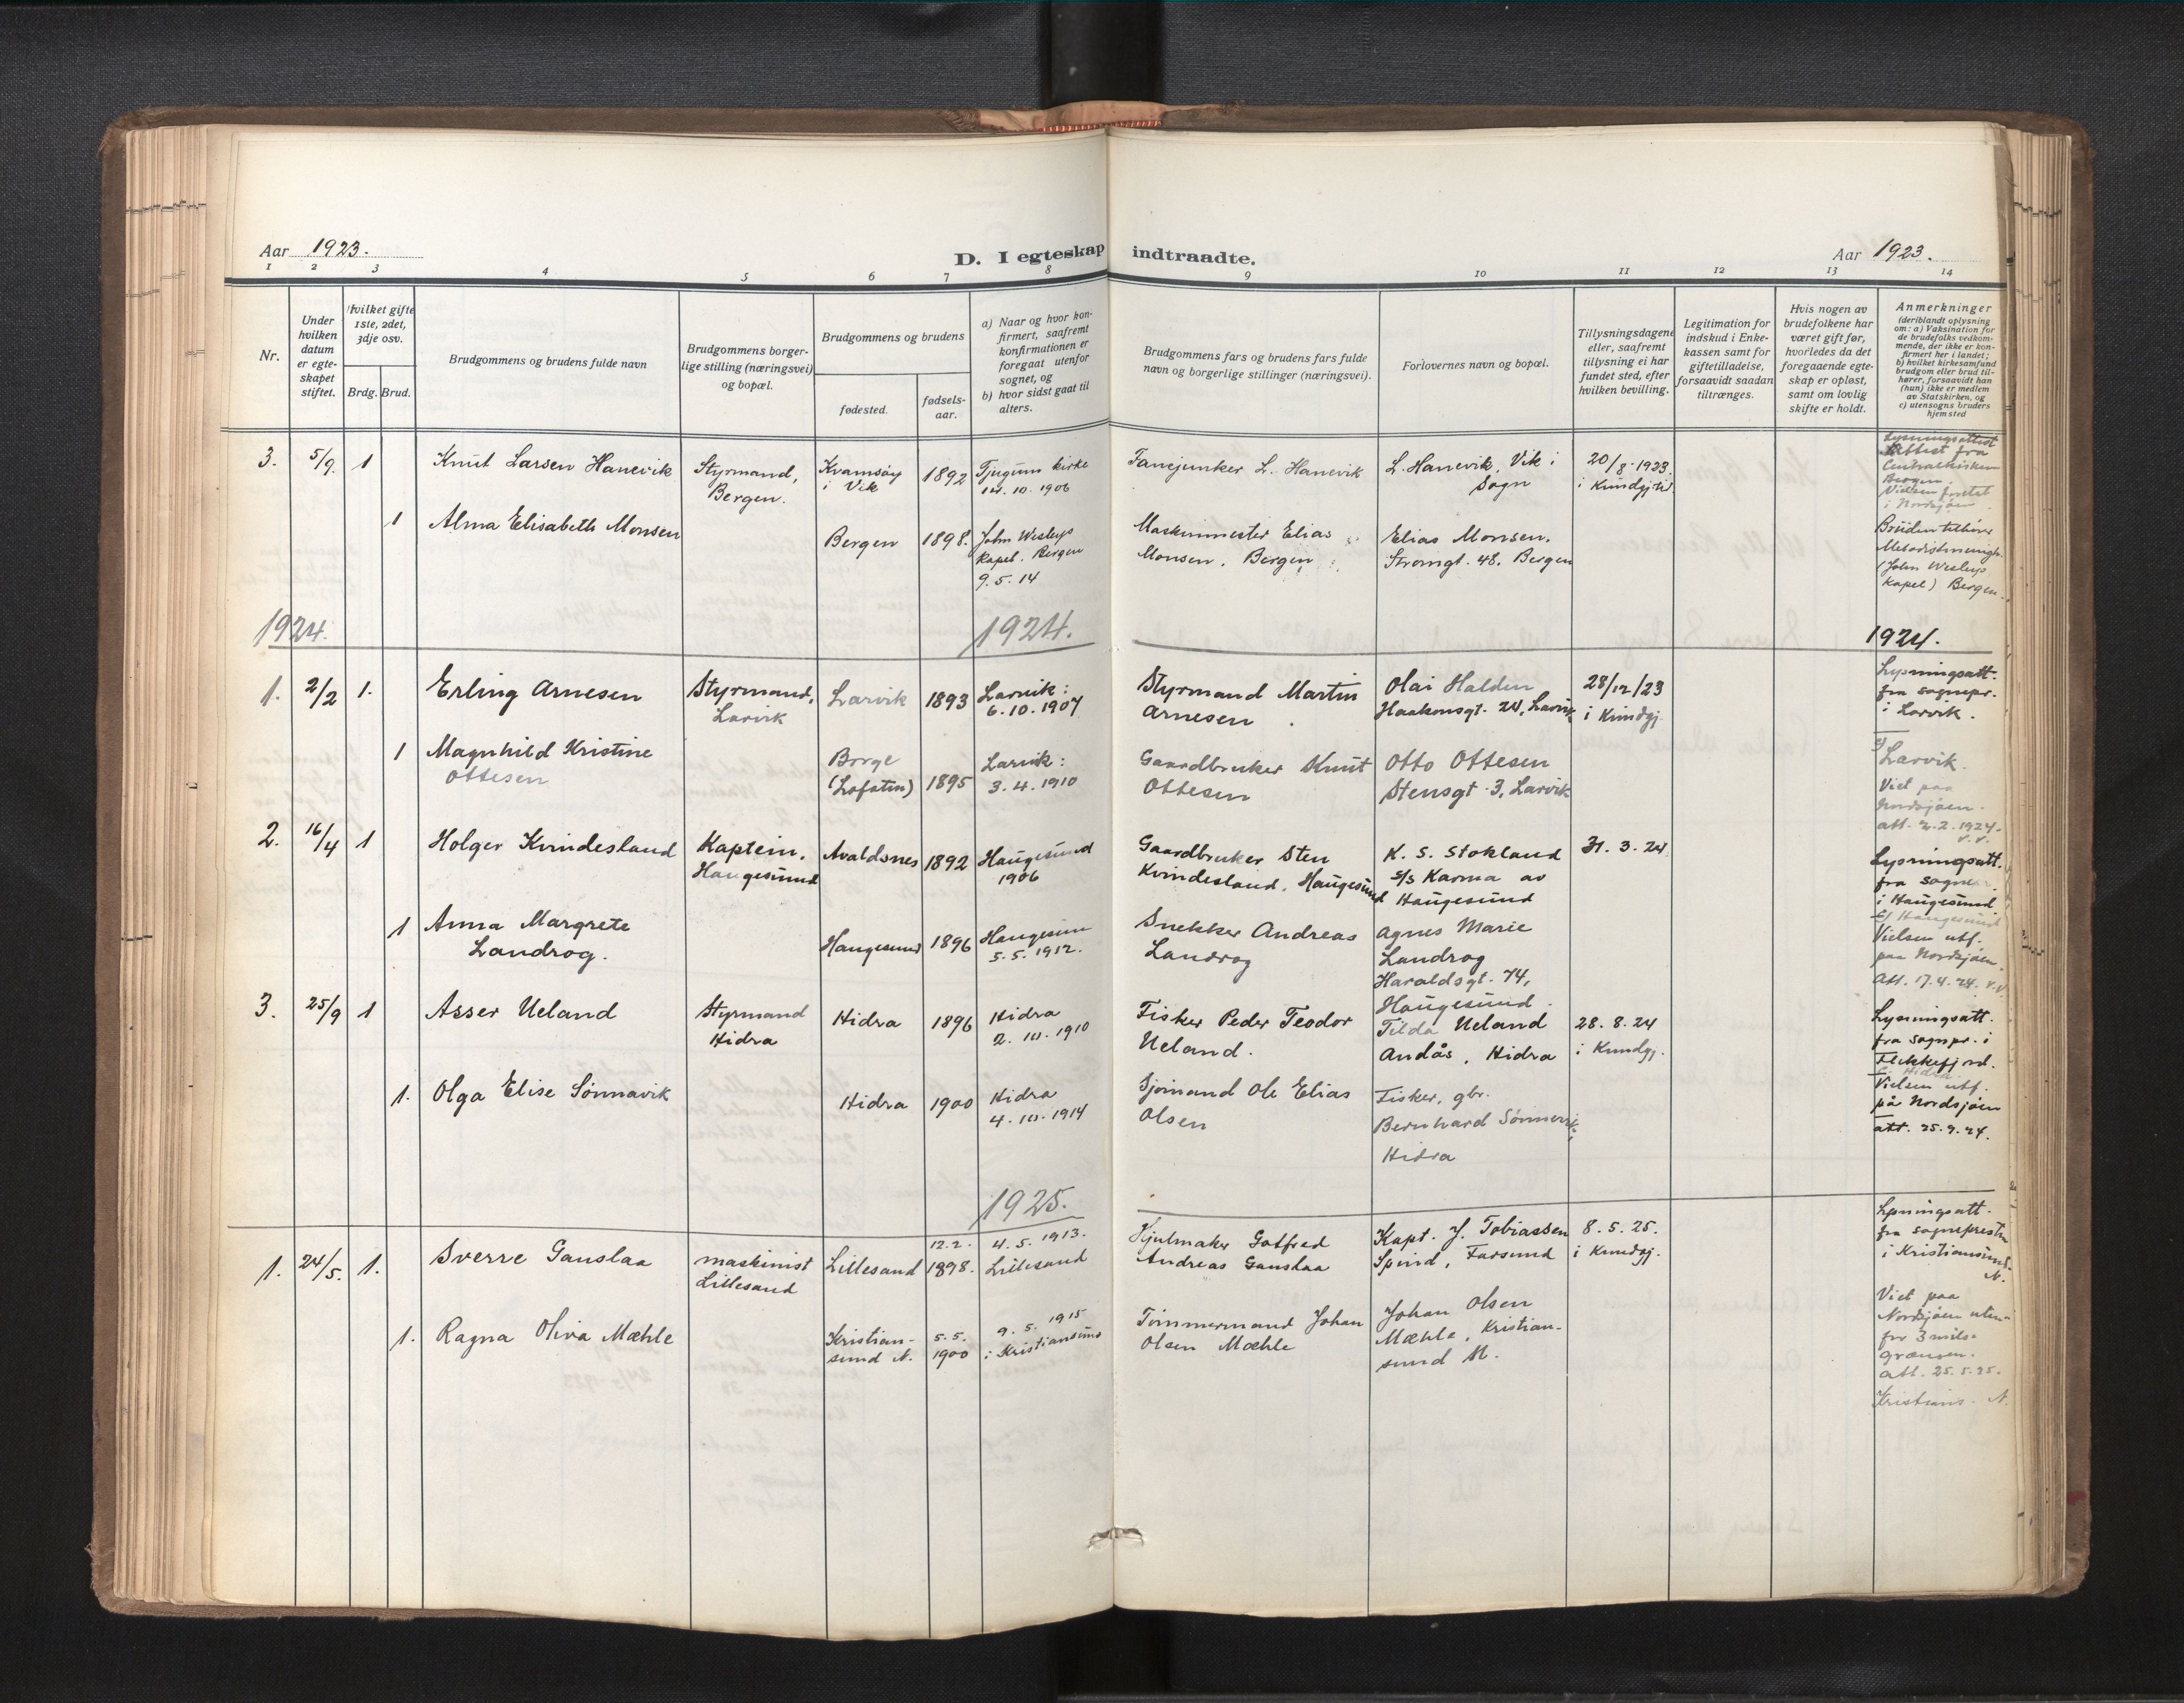 Aar 1923.
D. I egteskap indtraadte.
Aar 1923.
1 2 3 4 5 6 7 8 9 10 11 12 13 14
Nr.
Under hvilken datum er egteskapet stiftet.
Hvilket gifte 1ste, 2det, 3dje osv.
Brdg. Brud.
Brudgommens og brudens fulde navn
Brudgommens borger-
lige stilling (næringsvei)
og bopæl.
Brudgommens og brudens
fødested.
fødsels-
aar.
a) Naar og hvor kon-
firmert, saafremt
konfirmationen er
foregaat utenfor
sognet, og
b) hvor sidst gaat til
alters.
Brudgommens fars og brudens fars fulde
navn og borgerlige stillinger (næringsvei).
Forlovernes navn og bopæl.
Tillysningsdagene
eller, saafremt
tillysning ei har
fundet sted, efter
hvilken bevilling.
Legitimation for
indskud i Enke-
kassen samt for
giftetilladelse,
forsaavidt saadan
tiltrænges.
Hvis nogen av
brudefolkene har
været gift før,
hvorledes da det
foregaaende egte-
skap er opløst,
samt om lovlig
skifte er holdt.
Anmerkninger
(deriblandt oplysning
om: a) Vaksination for
de brudefolks vedkom-
mende, der ikke er kon-
firmert her i landet;
b) hvilket kirkesamfund
brudgom eller brud til-
hører, forsaavidt han
(hun) ikke er medlem
av Statskirken, og
c) utensogns bruders
hjemsted
3. 5/9. 1 Knut Larsen Hanevik
Styrmand,
Bergen.
Kvamsøy
i Vik
1892
Tjugum kirke
14.10.1906
Fanejunker L. Hanevik
L. Hanevik, Vik i
Sogn
20/8-1923.
Lysningsattest
Attest fra
Bergen.
Vielsen foretat
i Nordsjøen
1 Alma Elisabeth Monsen
Bergen
1898.
John Wesleys
Kapel. Bergen
9.5.14
Maskinmester Elias
Monsen, Bergen
Elias Monsen.
Strømgt. 48, Bergen
Bruden tilhører
(John Wesleys
Kapel) Bergen.
1924. 1924. 1924.
1. 2/2 1. Erling Arnesen
Styrmand,
Larvik
Larvik
1893
Larvik:
6.10.1907
Styrmand Martin
Arnesen
Olai Halden
Haakonsgt. 24, Larvik
28/12/23
i Kundgj.
Lysningsatt.
fra sognepr.
i Larvik.
1 Magnhild Kristine
Ottesen
Borge
(Lofoten)
1895
Larvik:
3.4.1910
Gaardbruker Knut
Ottesen
Otto Ottesen
Stensgt. 3, Larvik
Larvik.
Viet paa
Nordsjøen.
att. 2.2.1924.
2. 16/4 1 Holger Kvindesland
Kaptein.
Haugesund
Avaldsnes
1892
Haugesund
1906
Gaardbruker Sten
Kvindesland, Haugesund
K. S. Stokland
s/s Karma av
Haugesund
31.3.24
Lysningsatt.
fra sognepr.
i Haugesund
c/ Haugesund
Vielsen utf.
paa Nordsjøen.
Att. 17.4.24.
1 Anna Margrete
Landrog.
Haugesund
1896
Haugesun
5.5.1912.
Snekker Andreas
Landrog
Agnes Marie
Landrog
Haraldsgt. 74,
Haugesund.
3. 25/9 1 Asser Ueland
Styrmand
Hidra
Hidra
1896
Hidra
2.10.1910
Fisker Peder Teodor
Ueland.
Tilda Ueland
Andås, Hidra
28.8.24
i Kundgj.
Lysningsatt.
fra sognepr. i
Flekkefjord.
c. Hidra
Vielsen utf.
på Nordsjøen
att. 25.9.24.
1. Olga Elise Sönnavik
Hidra
1900
Hidra
4.10.1914
Sjömand Ole Elias
Olsen
Fisker, gbr.
Bernhard Sönnevik,
Hidra
1925.
1. 24/5. 1. Sverre Ganslaa
maskinist
Lillesand
Lillesand
12.2.
1898.
4.5.1913.
Lillesand
Hjulmaker Gotfred
Andreas Ganslaa
Kapt. J. Tobiassen
Spind, Farsund
8.5.25.
i Kundgj.
Lysningsatt.
fra sognepresten
i Kristiansund.
N.
1. Ragna Oliva Mæhle
Kristian-
sund N.
5.5.
1900
9.5.1915
i Kristiansund
Tömmermand Johan
Olsen Mæhle
Johan Olsen
Mæhle, Kristian-
sund N.
Viet paa
Nordsjøen uten-
for 3 mils-
grænsen.
att. 25.5.25.
Kristians. N.